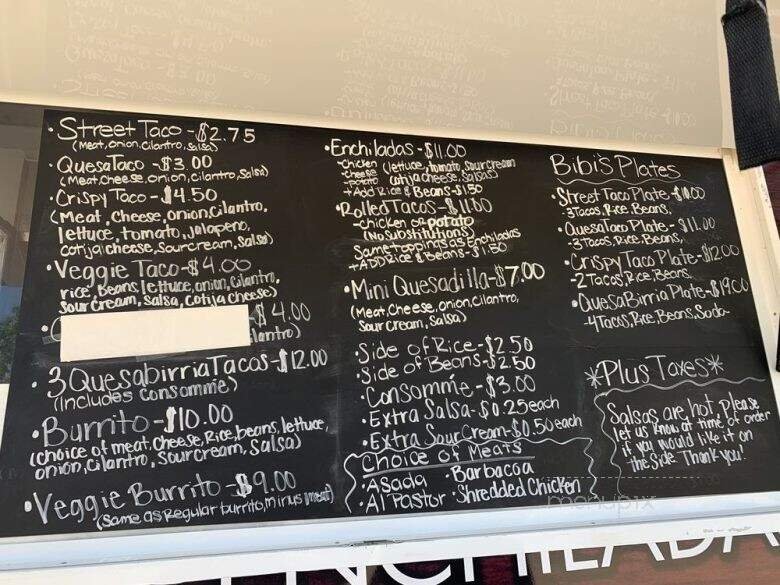 • Street Taco - $2.75
(Meat, onion, cilantro, salsa)
• QuesaTaco - $3.00
(Meat, Cheese, onion, cilantro, salsa)
• Crispy Taco - $4.50
(Meat, cheese, onion, cilantro,
lettuce, tomato, Jalapeno,
cotija cheese, Sour cream, Salsa)
• Veggie Taco - $4.00
rice, beans, lettuce, onion, cilantro,
Sour cream, salsa, cotija cheese)
$4.00
• 3 Quesabirria Tacos - $12.00
(Includes consommé)
• Burrito - $10.00
(choice of meat, Cheese, Rice, beans, lettuce,
onion, cilantro, Sour cream, Salsa)
• Veggie Burrito - $9.00
(Same as Regular burrito, minus meat)
• Enchiladas - $11.00
- chicken (lettuce, tomato, Sour cream
- cheese cotija cheese, Salsas)
- potato
+ Add Rice & Beans - $1.50
• Rolled Tacos - $11.00
- chicken or potato
(No substitutions)
Same toppings as Enchiladas
+ ADD Rice & Beans - $1.50
• Mini Quesadilla - $7.00
(Meat, Cheese, onion, cilantro,
Sour cream, Salsa)
• Side of Rice - $2.50
• Side of Beans - $2.50
• Consommé - $3.00
• Extra Salsa - $0.25 each
• Extra Sour Cream - $0.50 each
Choice of Meats
• Asada • Barbacoa
• Al Pastor • Shredded Chicken
Bibi's Plates
• Street Taco Plate - $10.00
- 3 Tacos, Rice, Beans,
• Quesa Taco Plate - $11.00
- 3 Tacos, Rice, Beans,
• Crispy Taco Plate - $12.00
- 2 Tacos, Rice, Beans,
• Quesa Birria Plate - $19.00
- 4 Tacos, Rice, Beans, Soda -
*Plus Taxes*
Salsas are hot, please
let us know at time of order
if you would like it on
the side Thank you!
menupix
ENCHILADA